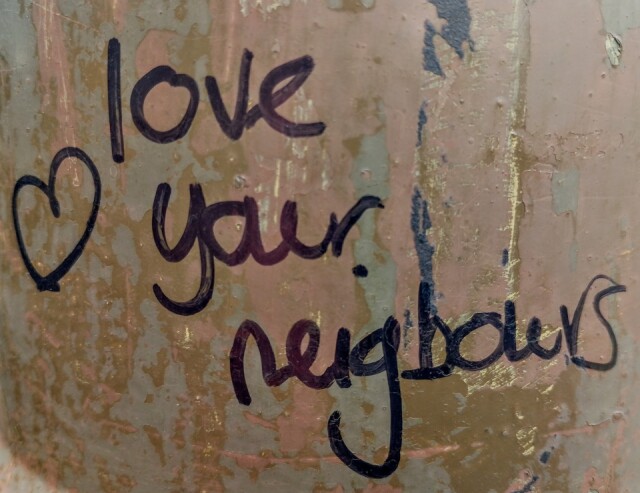 love
your
neigbours